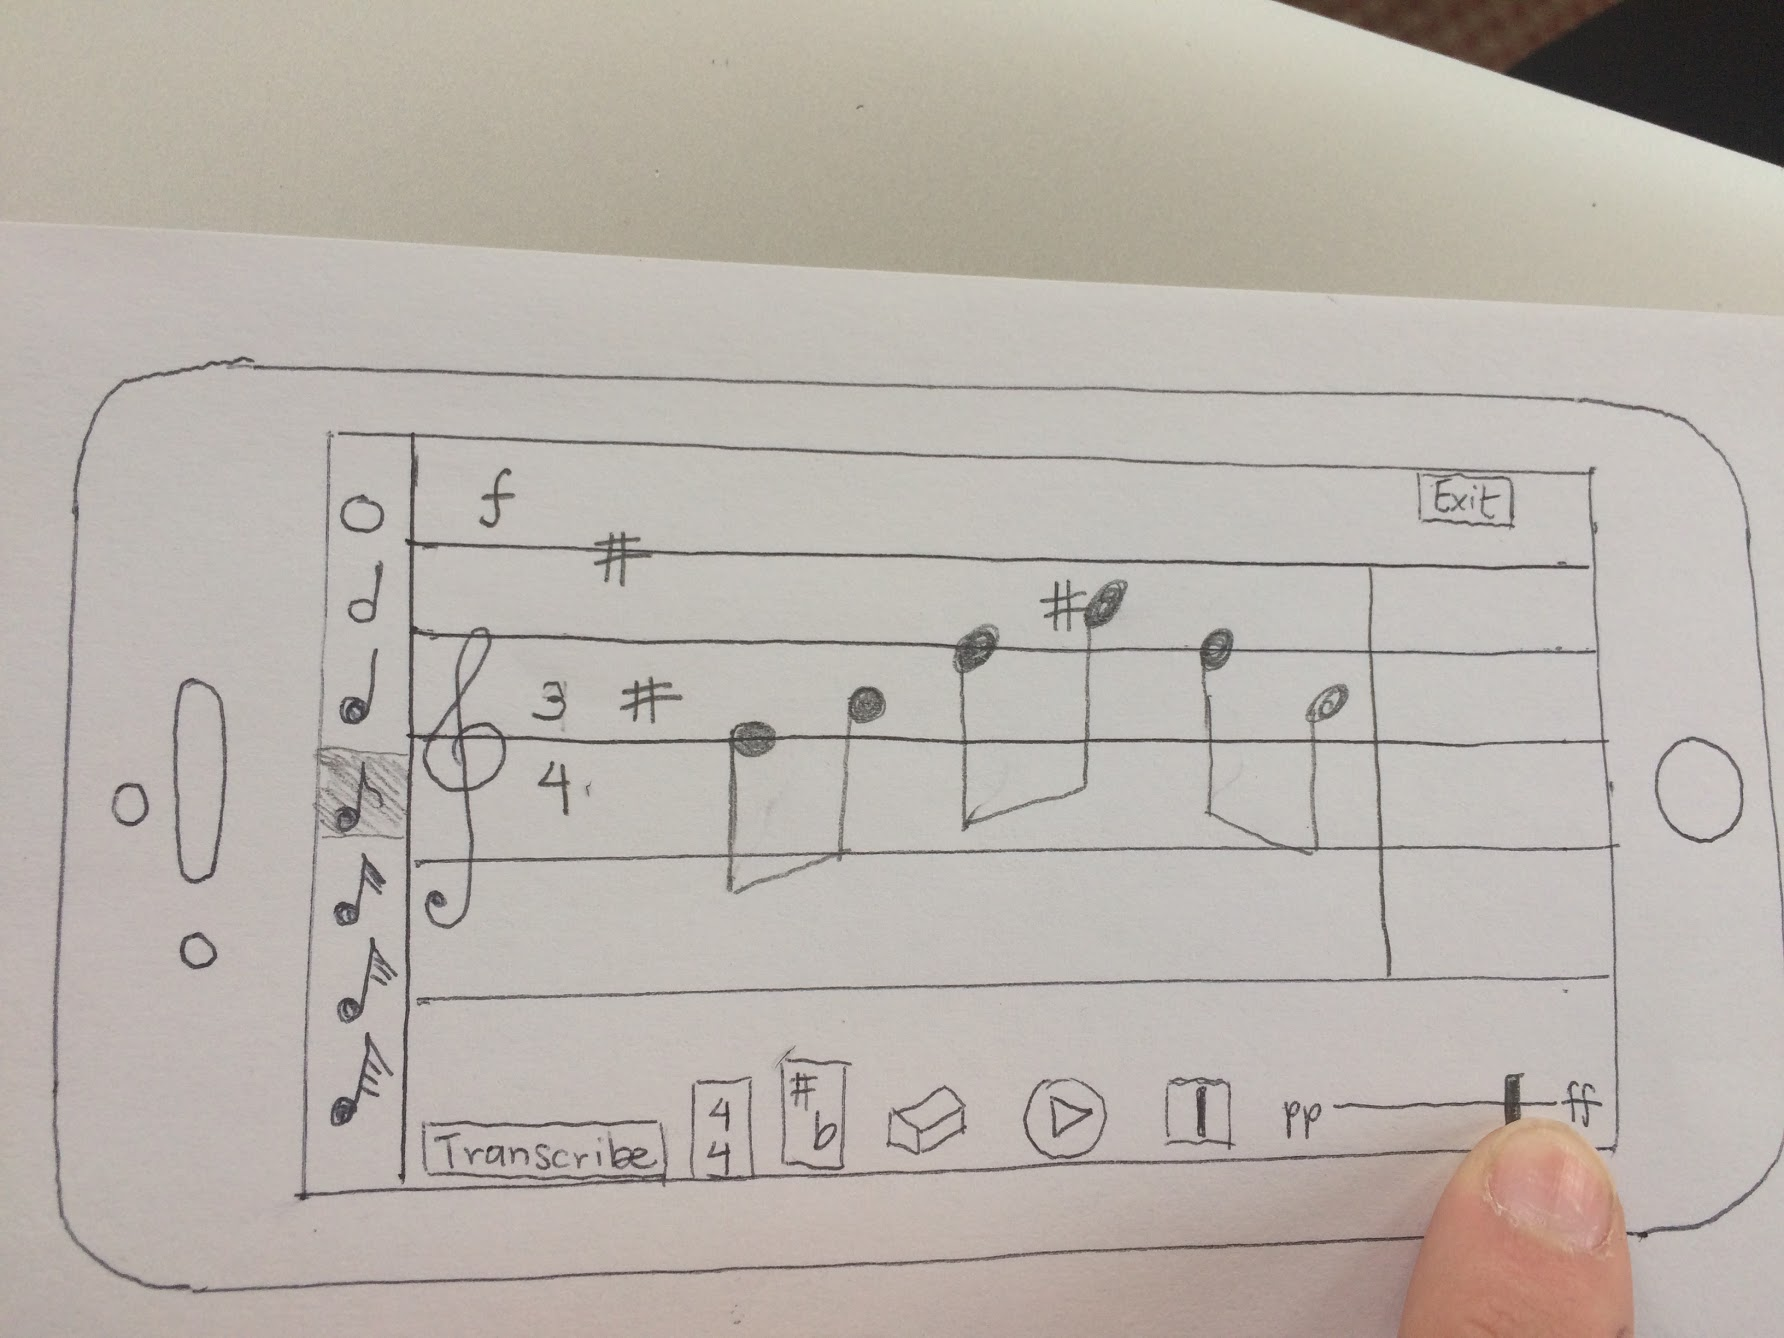 f
Exit
#
#
3 #
4
Transcribe
4
4
#
b
pp ff